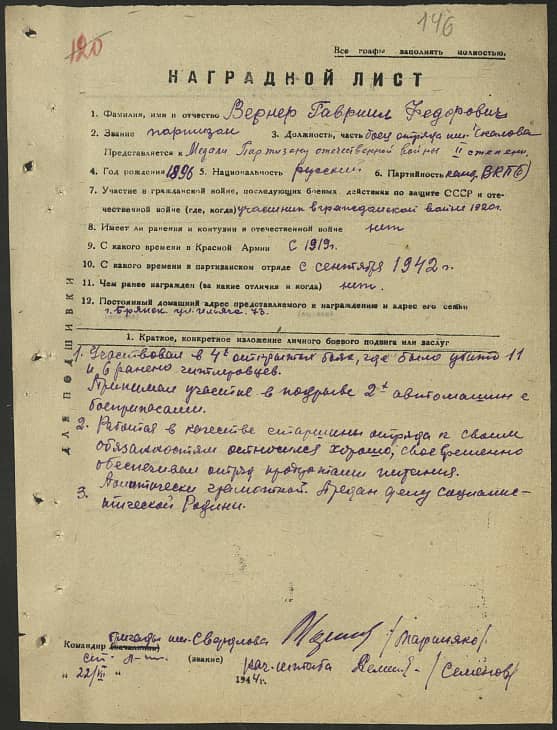 146
120
Все графы заполнять полностью.
НАГРАДНОЙ ЛИСТ
1. Фамилия, имя и отчество Вернер Гавриил Федорович
2. Звание партизан 3. Должность, часть боец отряда им.
Представляется к Медали Партизану отечественной войны II степени.
4. Год рождения 1896 5. Национальность русский 6. Партийность канд. ВКП(б)
7. Участие в гражданской войне, последующих боевых действиях по защите СССР и оте-
чественной войне (где, когда) участник в гражданской войне 1920г.
8. Имеет ли ранения и контузии в отечественной войне нет
9. С какого времени в Красной Армии С 1919г.
10. С какого времени в партизанском отряде с сентября 1942 г.
11. Чем ранее награжден (за какие отличия и когда) нет.
12. Постоянный домашний адрес представляемого к награждению и адрес его семьи
г. Брянск ул. 73.
ДЛЯ ПОДШИВКИ
1. Краткое, конкретное изложение личного боевого подвига или заслуг
1. Участвовал в 4х открытых боях, где было убито 11
и 6 ранено гитлеровцев.
Принимал участие в подрыве 2х автомашин с
боеприпасами.
2. Работая в качестве старшины отряда к своим
обязанностям относился хорошо, своевременно
обеспечивал отряд продуктами питания.
3. Политически грамотной. Предан делу социалис-
тической Родины.
Командир бригады им. Свердлова /Мариняко/
ст. л-т. (звание) нач. штаба /Семёнов/
" 22/VII " 1944г.